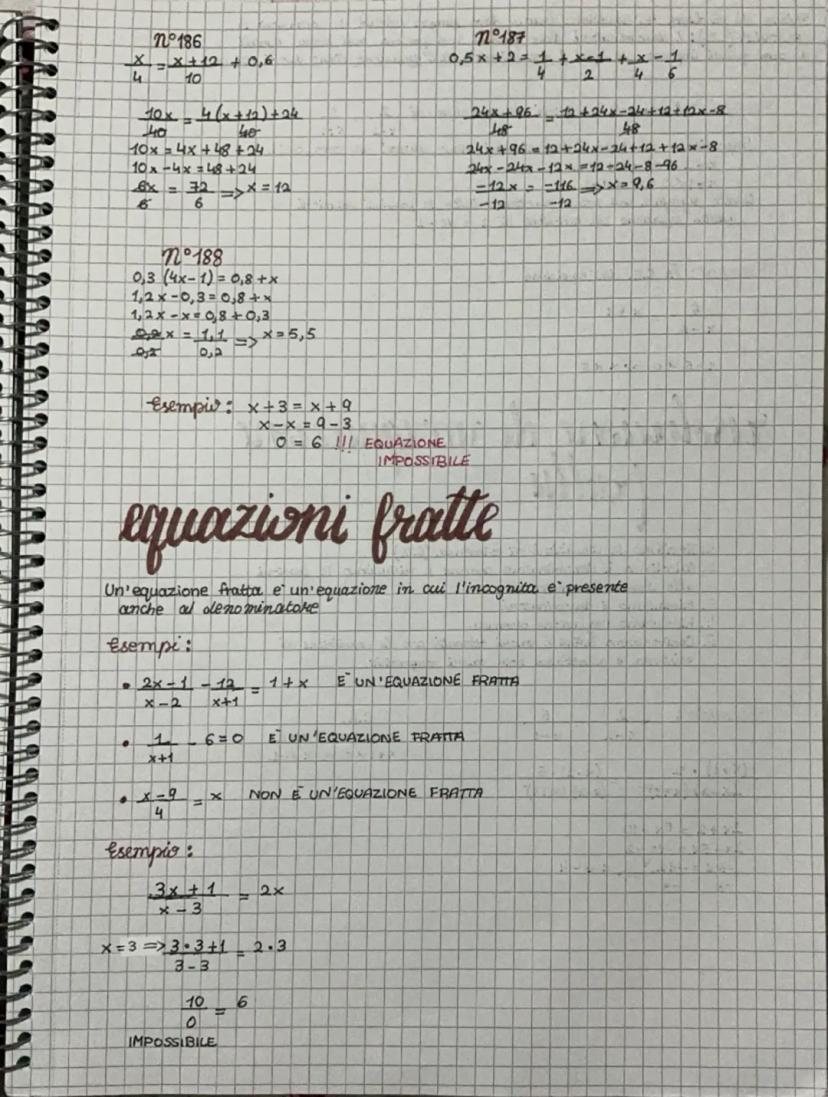 n°186
x/4 = x+12/10 + 0,6
10x/40 = 4(x+12)+24/40
10x = 4x+48+24
10x-4x=48+24
6x/6 = 72/6 => x=12
n°187
0,5x+2 = 1/4 + x-1/2 + x/4 - 1/6
24x+96/48 = 12+24x-24+12+12x-8/48
24x+96=12+24x-24+12+12x-8
24x-24x-12x=12-24-8-96
-12x/-12 = -116/-12 => x=9,6
n°188
0,3 (4x-1) = 0,8+x
1,2x-0,3=0,8+x
1,2x-x=0,8+0,3
0,2x/0,2 = 1,1/0,2 => x=5,5
Esempio: x+3 = x+9
x-x = 9-3
0 = 6 !!! EQUAZIONE
IMPOSSIBILE
equazioni fratte
Un'equazione fratta è un'equazione in cui l'incognita è presente
anche al denominatore
Esempi:
• 2x-1/x-2 - 12/x+1 = 1+x È UN'EQUAZIONE FRATTA
• 1/x+1 - 6=0 È UN'EQUAZIONE FRATTA
• x-9/4 = x NON È UN'EQUAZIONE FRATTA
Esempio:
3x+1/x-3 = 2x
x=3 => 3·3+1/3-3 = 2·3
10/0 = 6
IMPOSSIBILE